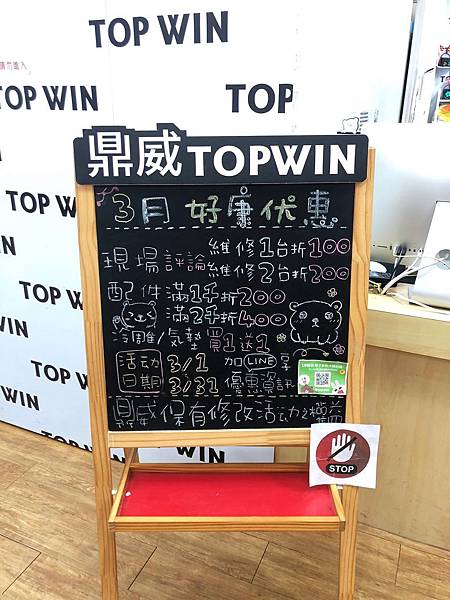 TOP WIN
請勿進入
TOP WIN
TOP
TOP W
TOP WIN
WIN
TOP
TOP WIN
鼎威TOPWIN
3月好康优惠
現場評論 維修1台折100
維修2台折200
配件滿1千折200
滿2千折400
冷雕/氣墊買1送1
活动日期 3/1 加LINE享
3/31 優惠資訊
鼎威保有修改活动之權益
STOP